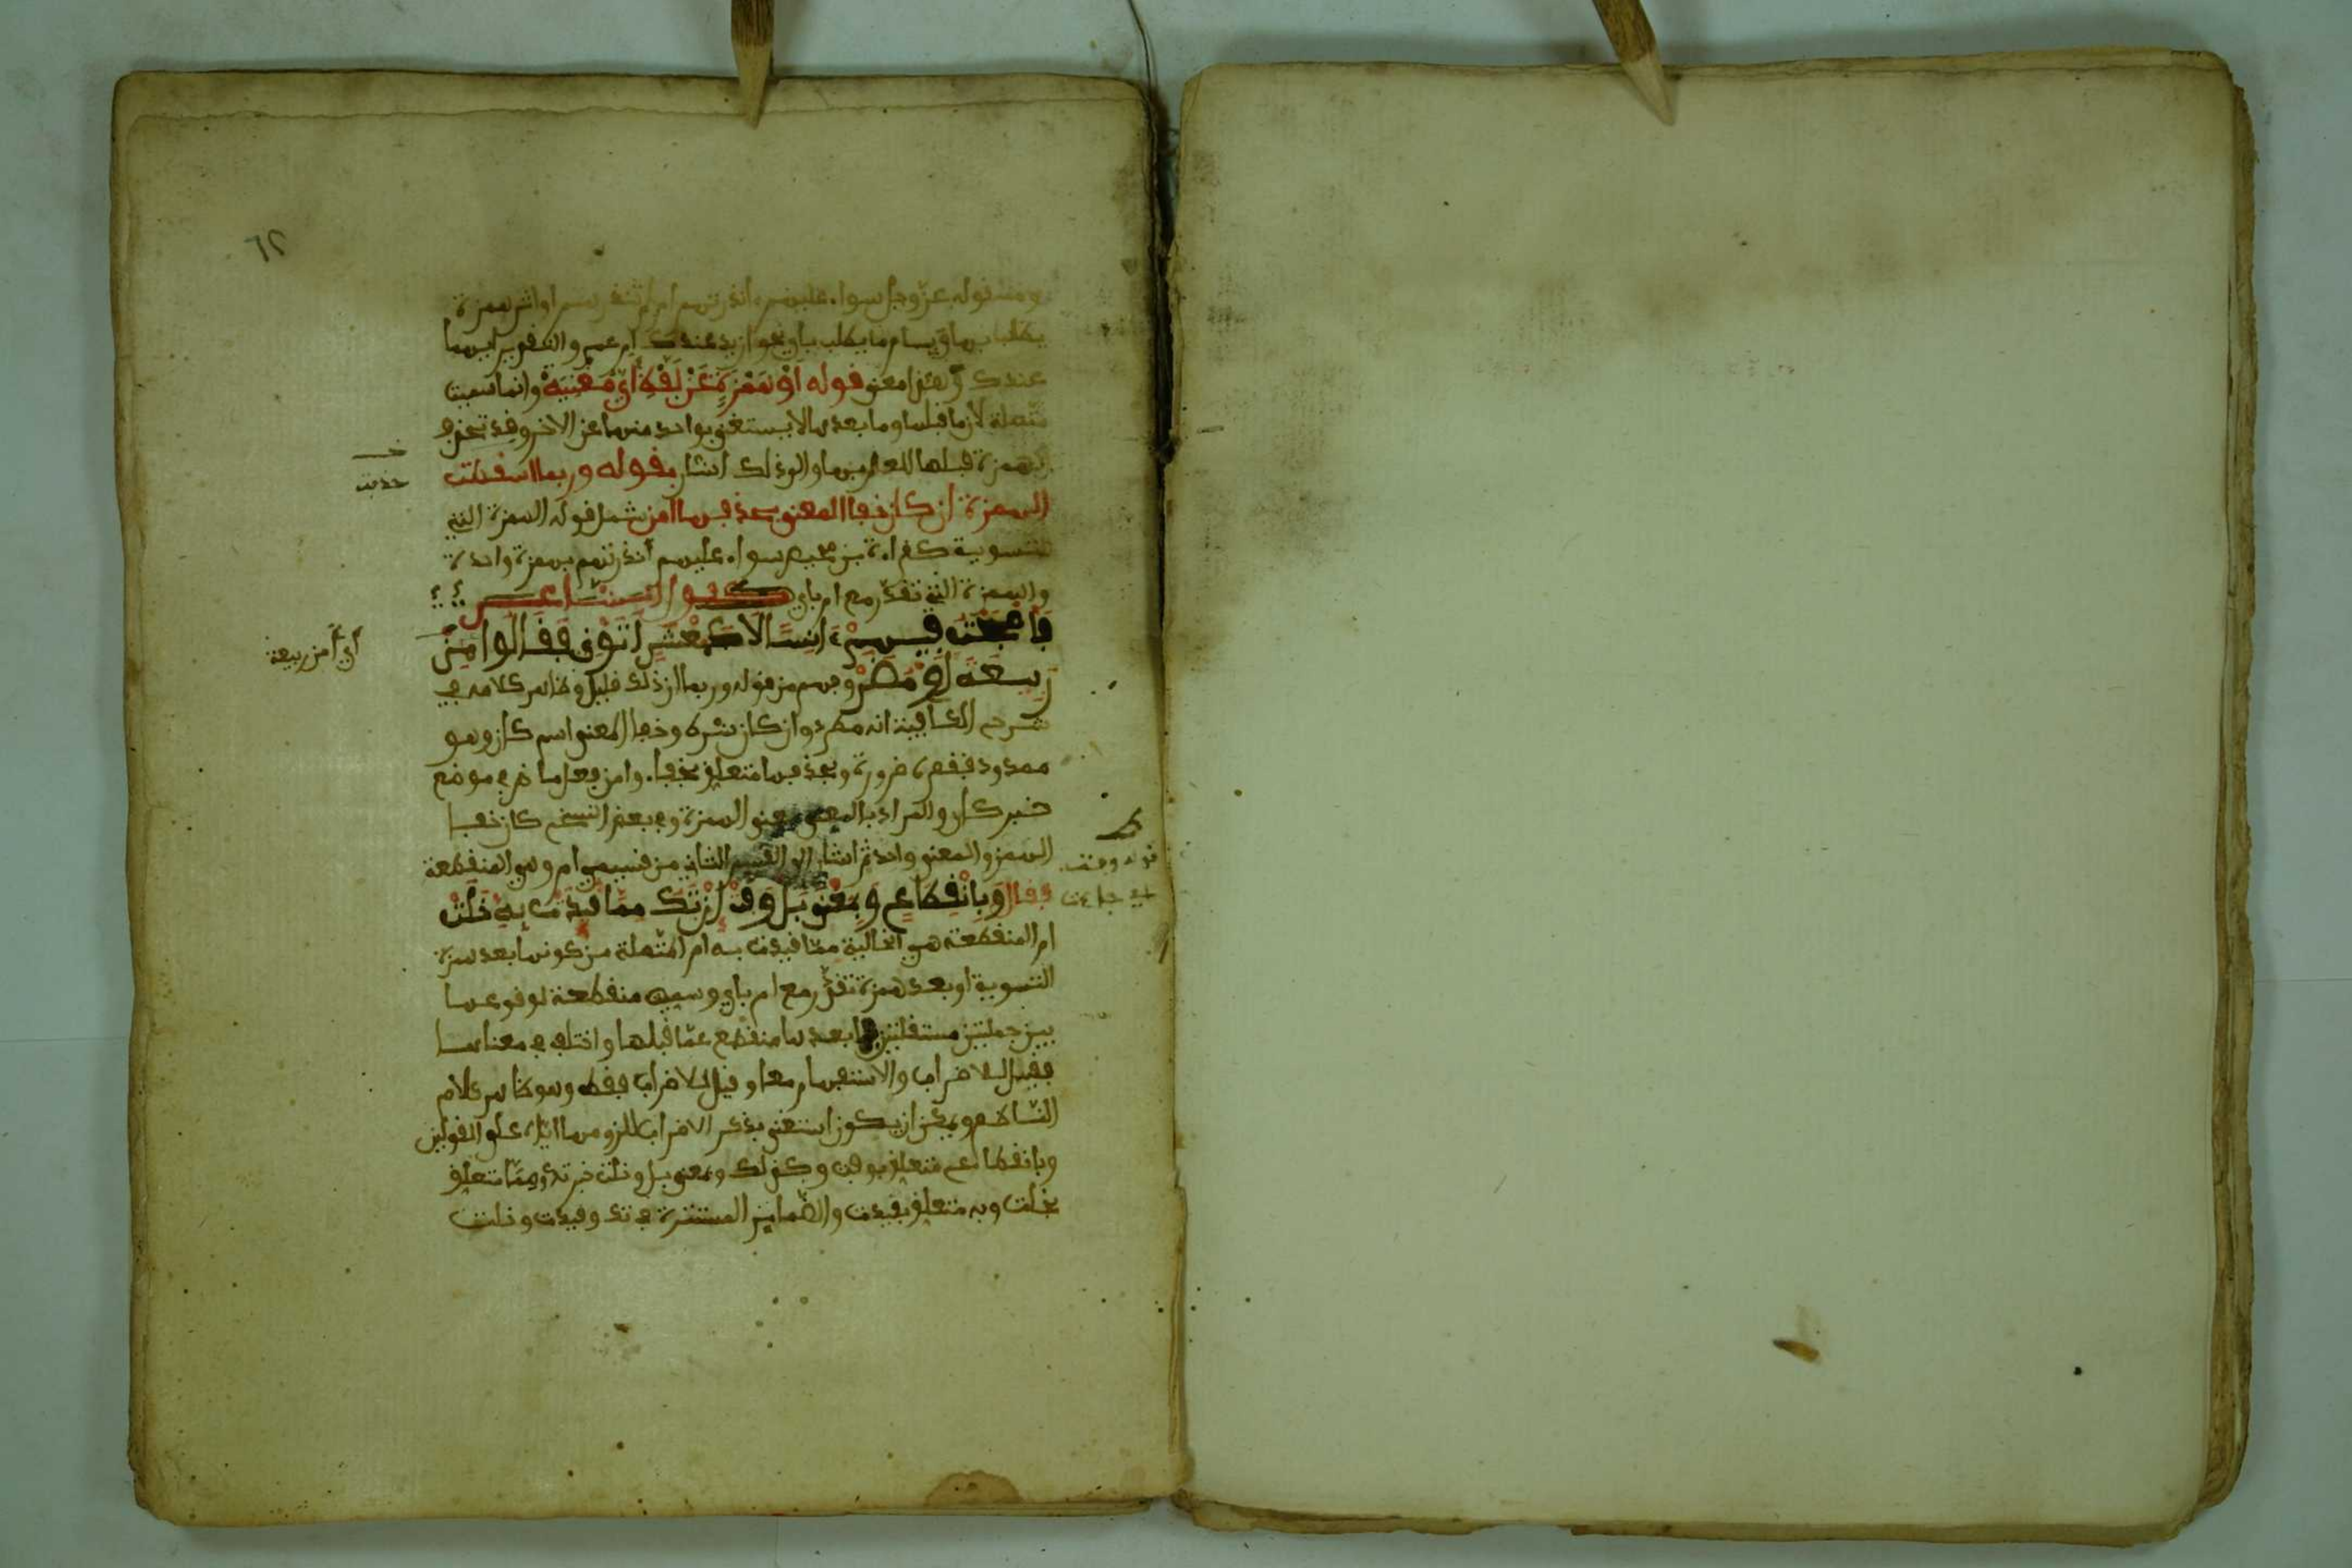 ومنه قوله عز وجل سواء عليهم ءانذرتهم ام لم تنذرهم او اثر همزة
يطلب بها وبام ما يطلب باي نحو ازيد عندك ام عمرو والتقدير ايهما
عندك وهذا معنى قوله اَوْ هَمْزَةٍ عَنْ لَفْظِ أَيٍّ مُغْنِيَهْ وانما سميت
متصلة لان ما قبلها وما بعدها لا يستغنى بواحد منهما عن الاخر وقد تحذف
الهمزة قبلها للعلم بها والى ذلك اشار بقوله وربما اسقطت
الهمزة ان كان خفا المعنى بحذفها امن شمل قوله الهمزة التي
للتسوية كقراءة بن محيصن سواء عليهم أنذرتهم بهمزة واحدة
والهمزة التي تقدر مع ام باي كقول الشاعر
فأصبحت فيهم ءامنا لا كمعشر اتوني فقالوا من
ربيعة او مضر وفهم من قوله وربما ان ذلك قليل وظاهر كلامه في
شرح الكافية انه مطرد وان كان شرط وخفا المعنى اسم كان وهو
ممدود فقصره ضرورة وبحذفها متعلق بخفاء وامن فعل ماض في موضع
خبر كان والمراد بالمعنى معنى الهمزة وفي بعض النسخ كان خفا
الهمز والمعنى واحد ثم اشار الى القسم الثاني من قسمي ام وهي المنقطعة
فقال وَبِانْقِطَاعٍ وَبِمَعْنَى بَلْ وَفَتْ إِنْ تَكُ مِمَّا قُيِّدَتْ بِهِ خَلَتْ
ام المنقطعة هي الخالية مما قيدت به ام المتصلة من كونها بعد همزة
التسوية او بعد همزة تقدر مع ام باي وسميت منقطعة لوقوعها
بين جملتين مستقلتين فما بعدها منقطع عما قبلها واختلف في معناها
فقيل للاضراب والاستفهام معا وقيل للاضراب فقط وهو ظاهر كلام
الناظم ويمكن ان يكون استغنى بذكر الاضراب للزومها اياه على القولين
وبانقطاع متعلق بوفت وكذلك وبمعنى بل وخلت خبر تك ومما متعلق
بخلت وبه متعلق بقيدت والضماير المستترة في تك وقيدت وخلت
حذفت
أي أمن ربيعة